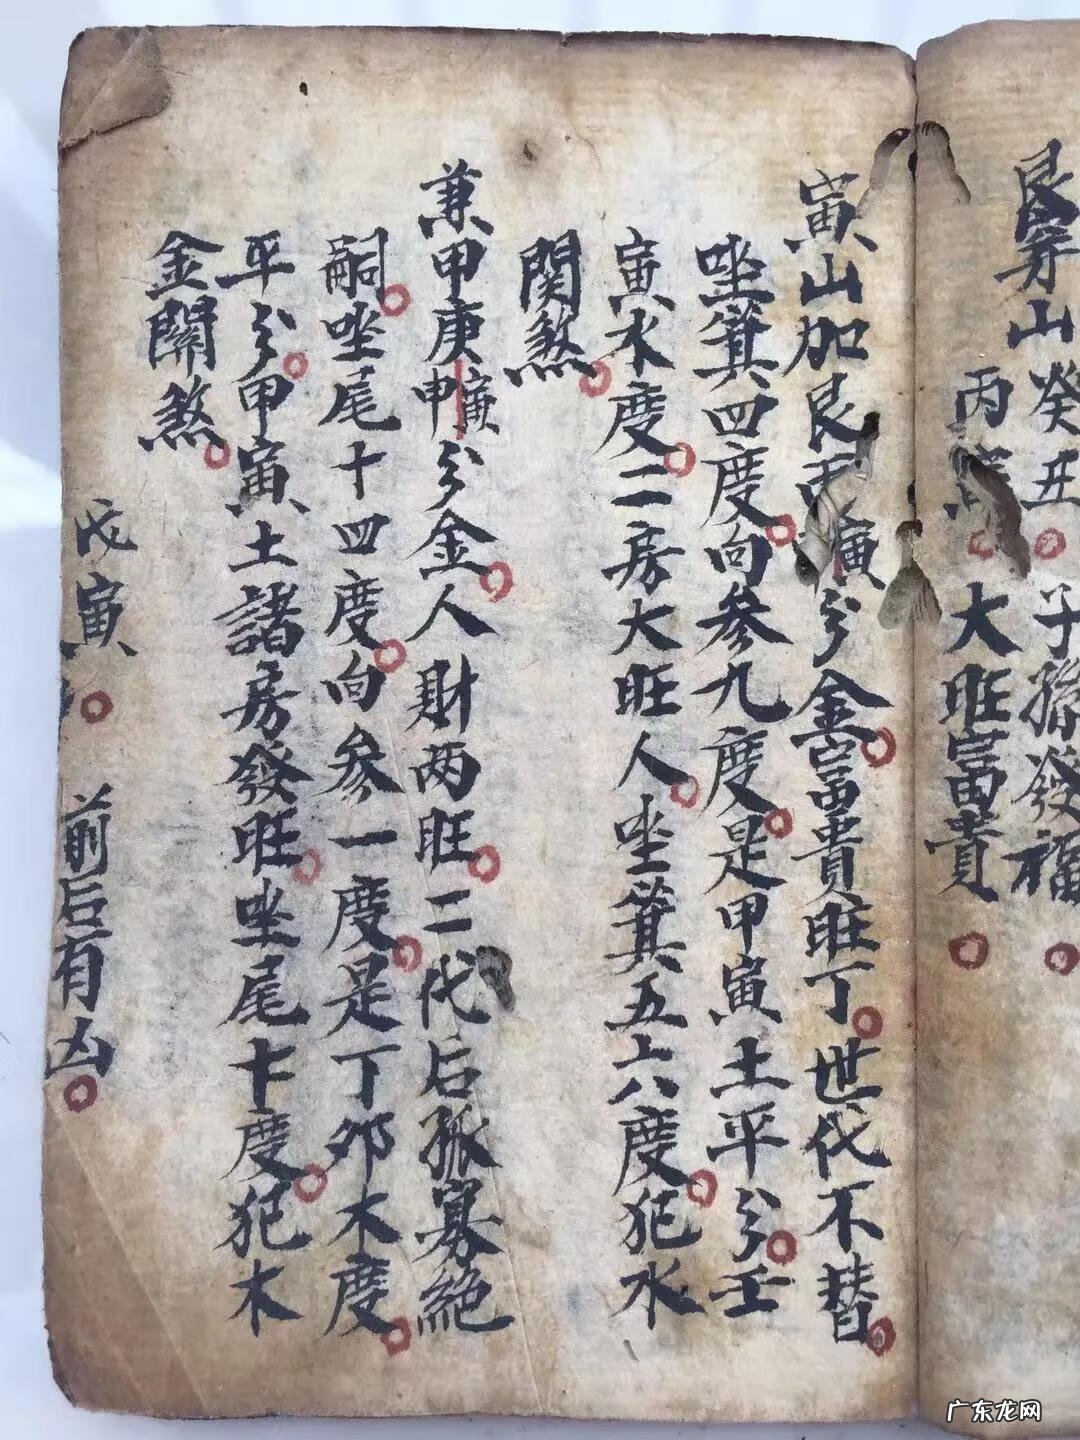 艮寅山癸丑 子孫發福
丙 大旺富貴
寅山加艮 分金富貴旺丁世代不替
坐箕四度向參九度是甲寅土平分壬
寅水度二房大旺人坐箕五六八度犯水
関煞
兼甲庚 分金人財两旺二代后孤寡絶
嗣坐尾十四度向參一度是丁卯木度
平分甲寅土諸房發旺坐尾十度犯木
金關煞
戊寅 前后有凶
广东龙网